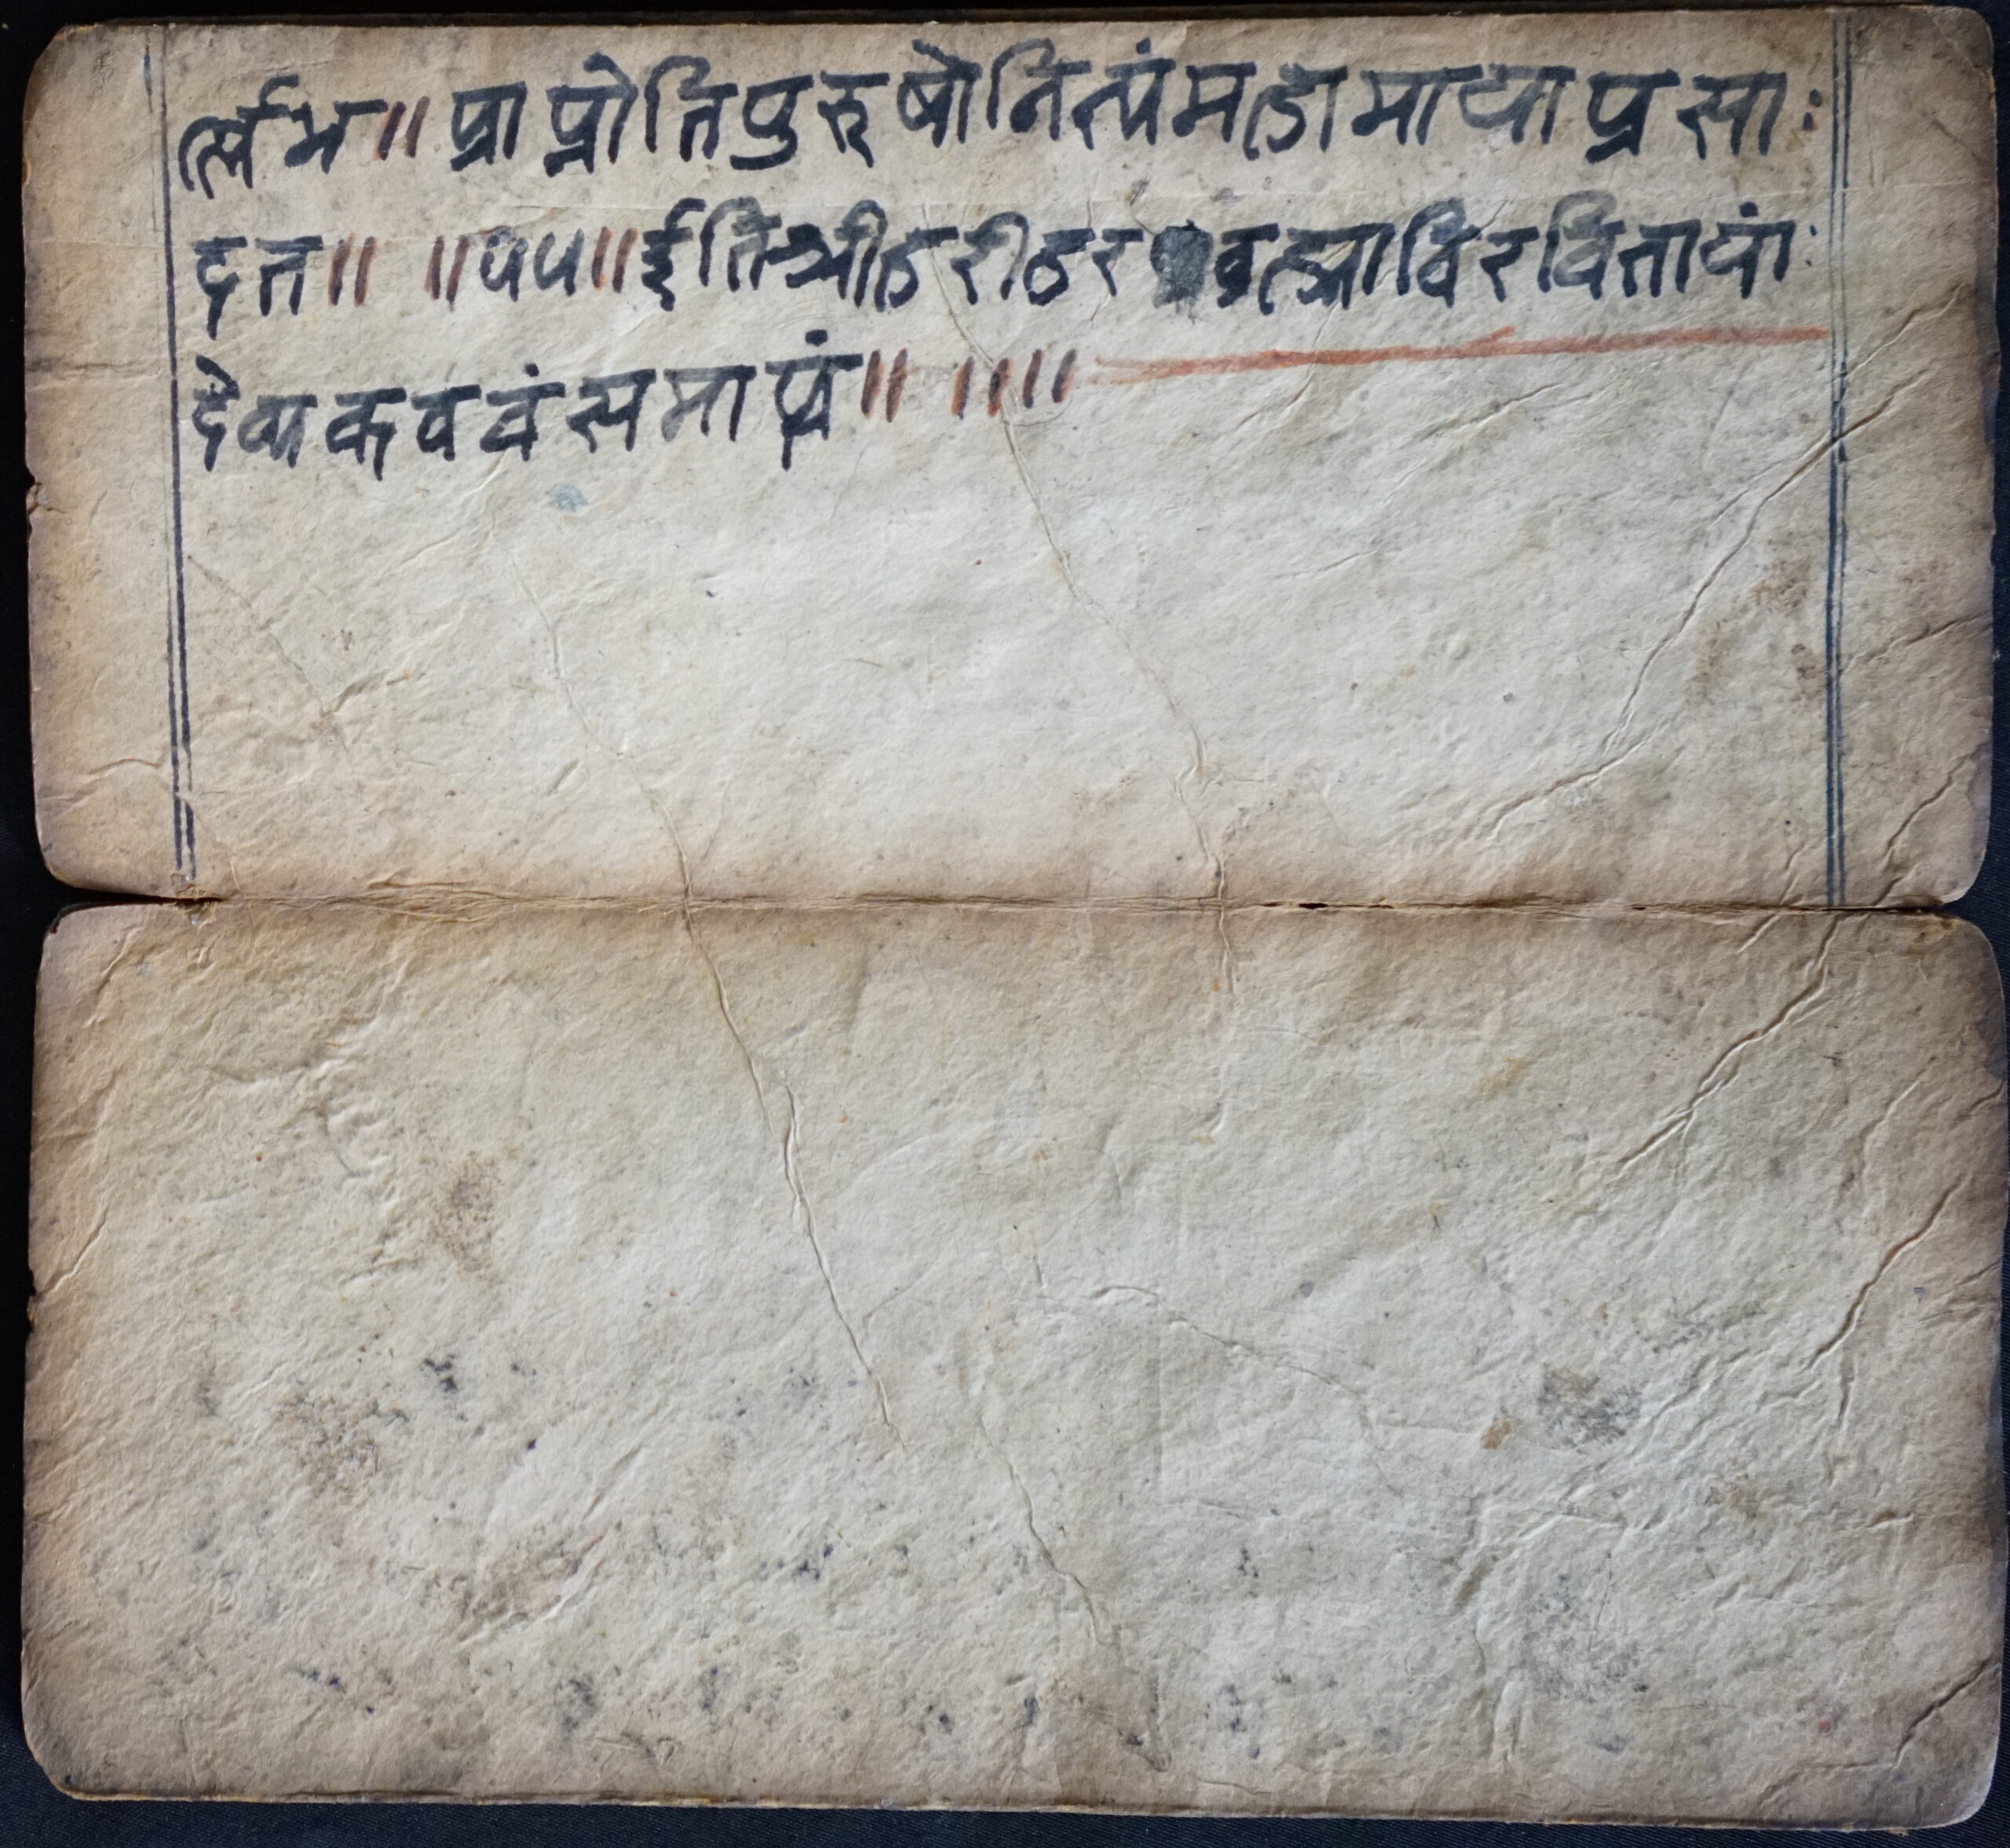 र्लभ॥ प्राप्नोति पुरुषो नित्यं महामाया प्रसा:
दत॥ ॥५५॥ ईति श्री हरी हर ब्रह्मा विरचितायां:
देव्या कवचं समाप्तं॥ ॥॥